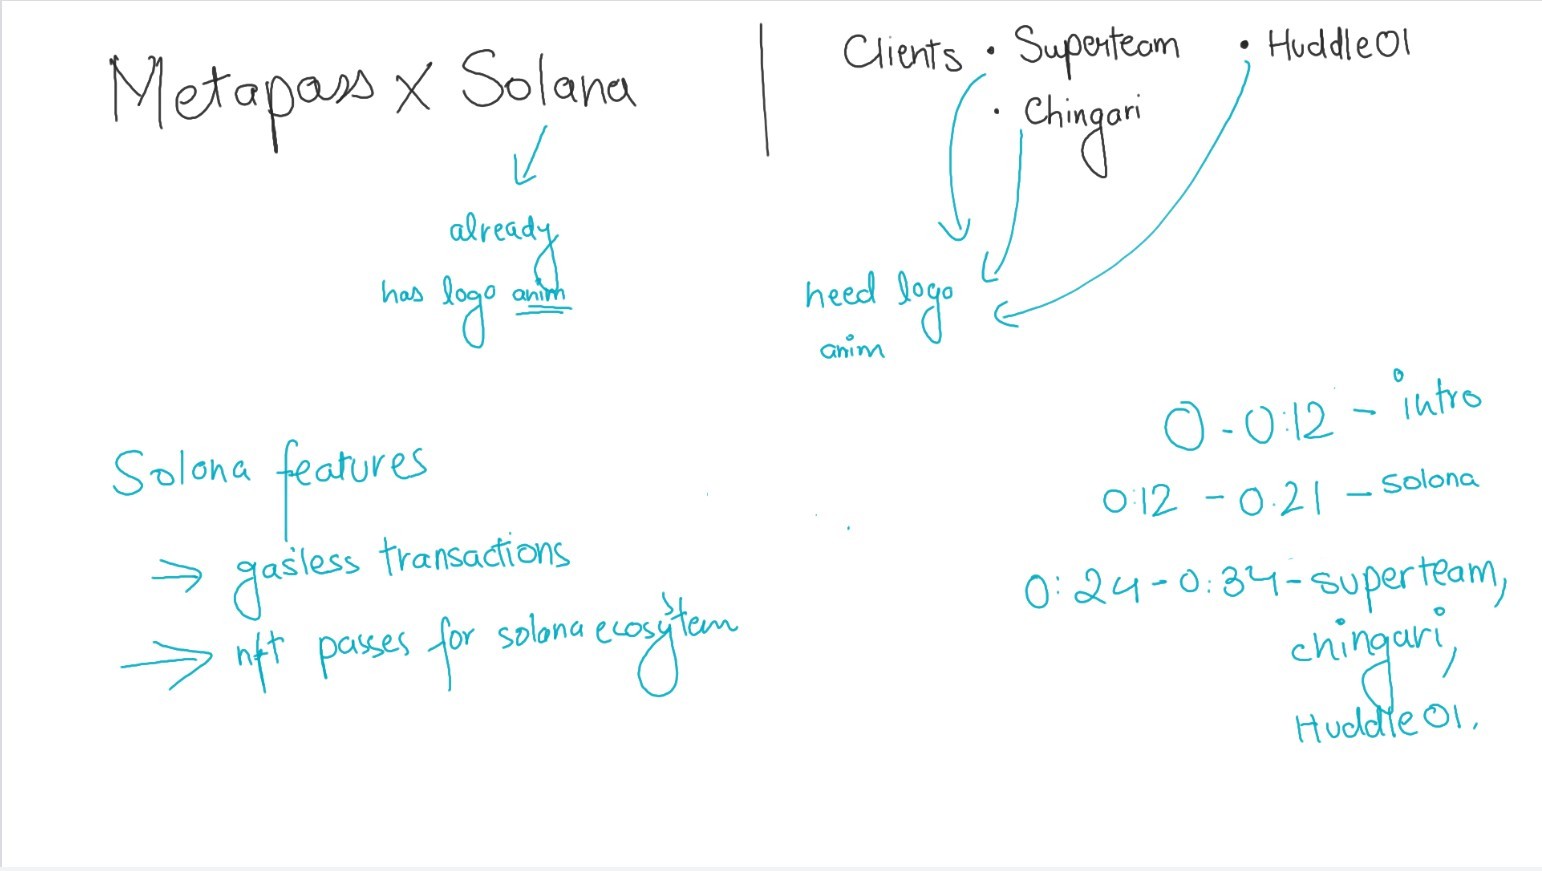 Metapass x Solana
already
has logo anim
Clients • Superteam • Huddle01
• Chingari
need logo
anim
Solana features
→ gasless transactions
→ nft passes for solana ecosytem
0 - 0:12 - intro
0:12 - 0.21 - solona
0:24-0:34-superteam,
chingari,
Huddle01.